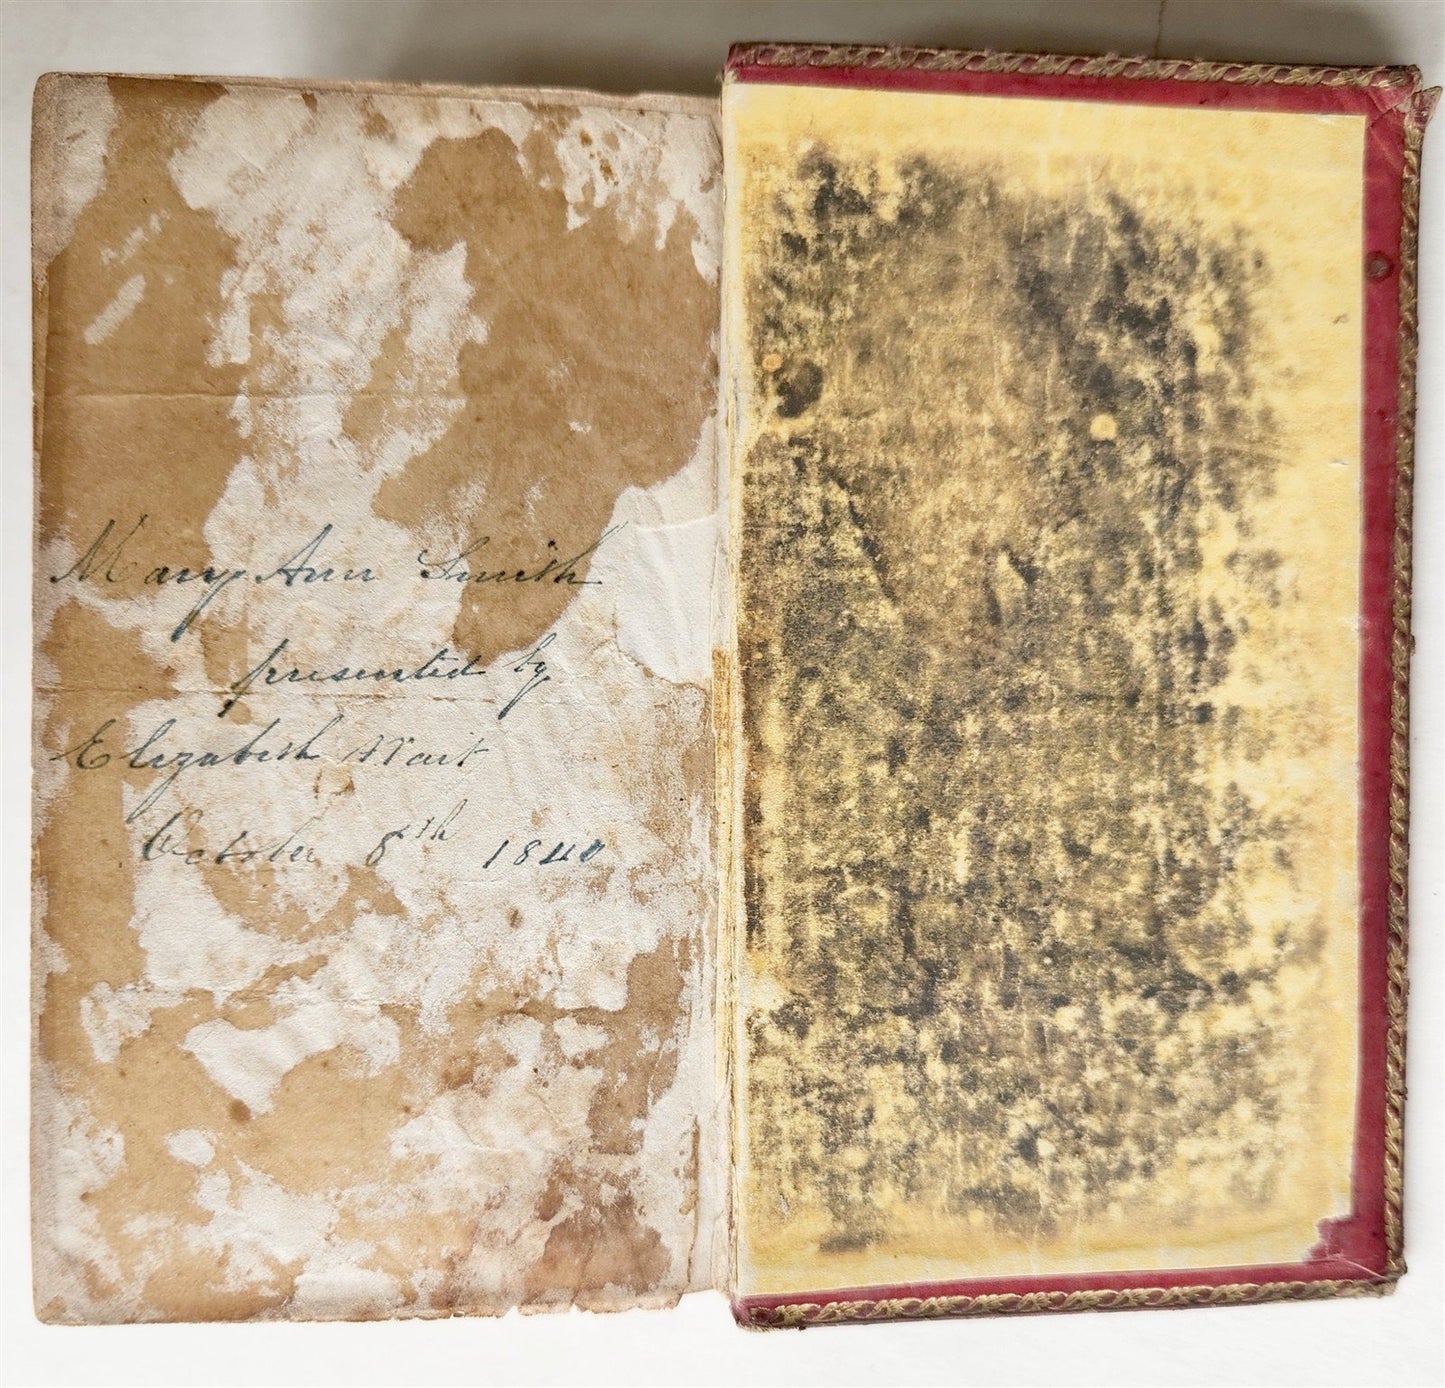 Mary Ann Smith
presented by
Elizabeth Wait
October 8th 1840